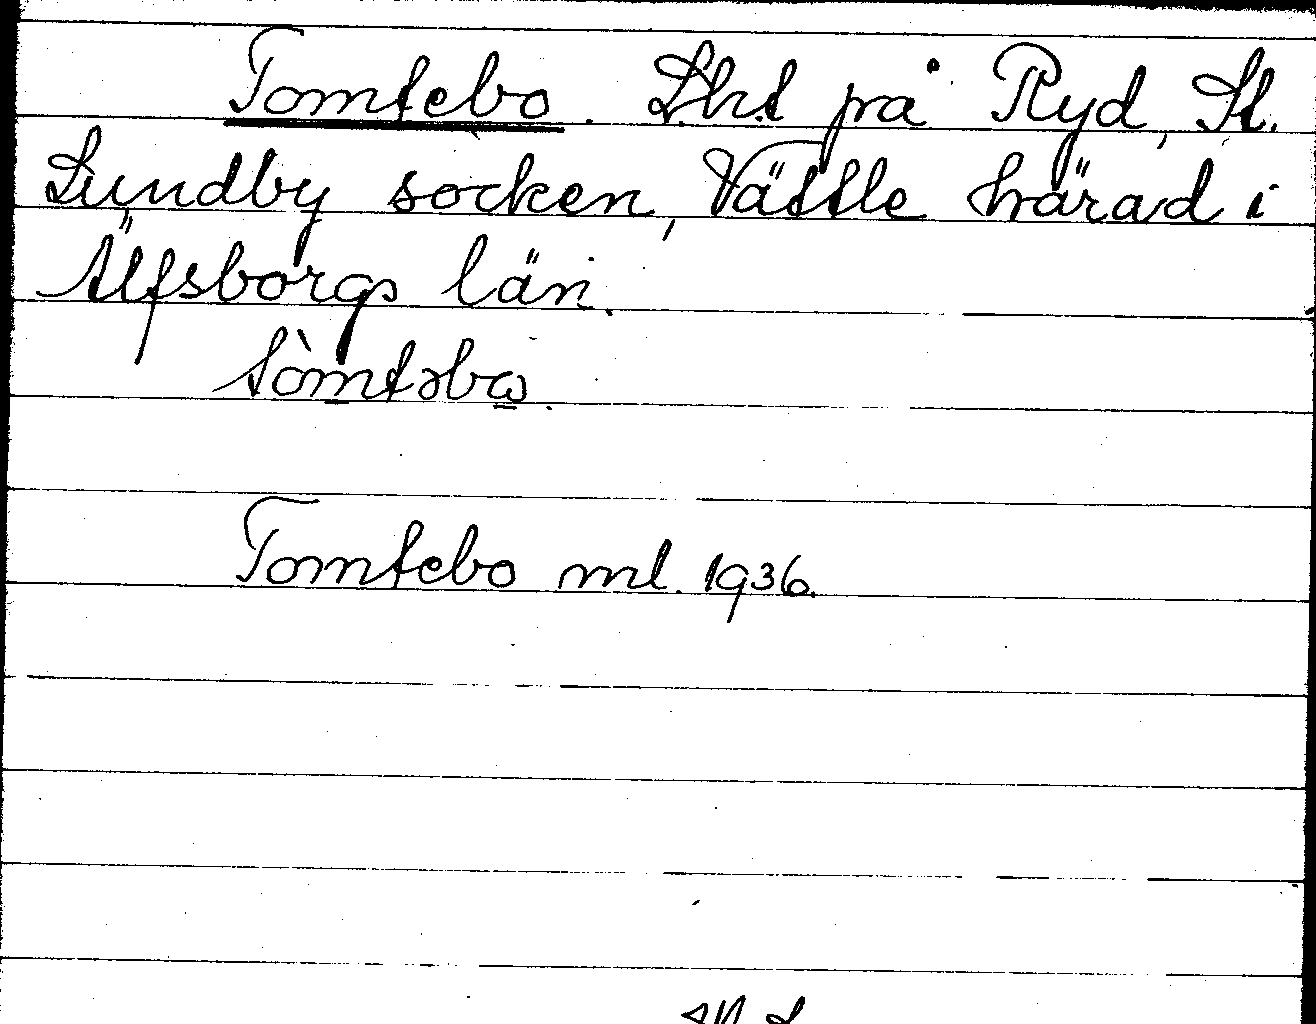 Tomtebo. Lht på Ryd, St.
Lundby socken, Vättle härad i
Älfsborgs län.
tòmtəbω.
Tomtebo ml. 1936.